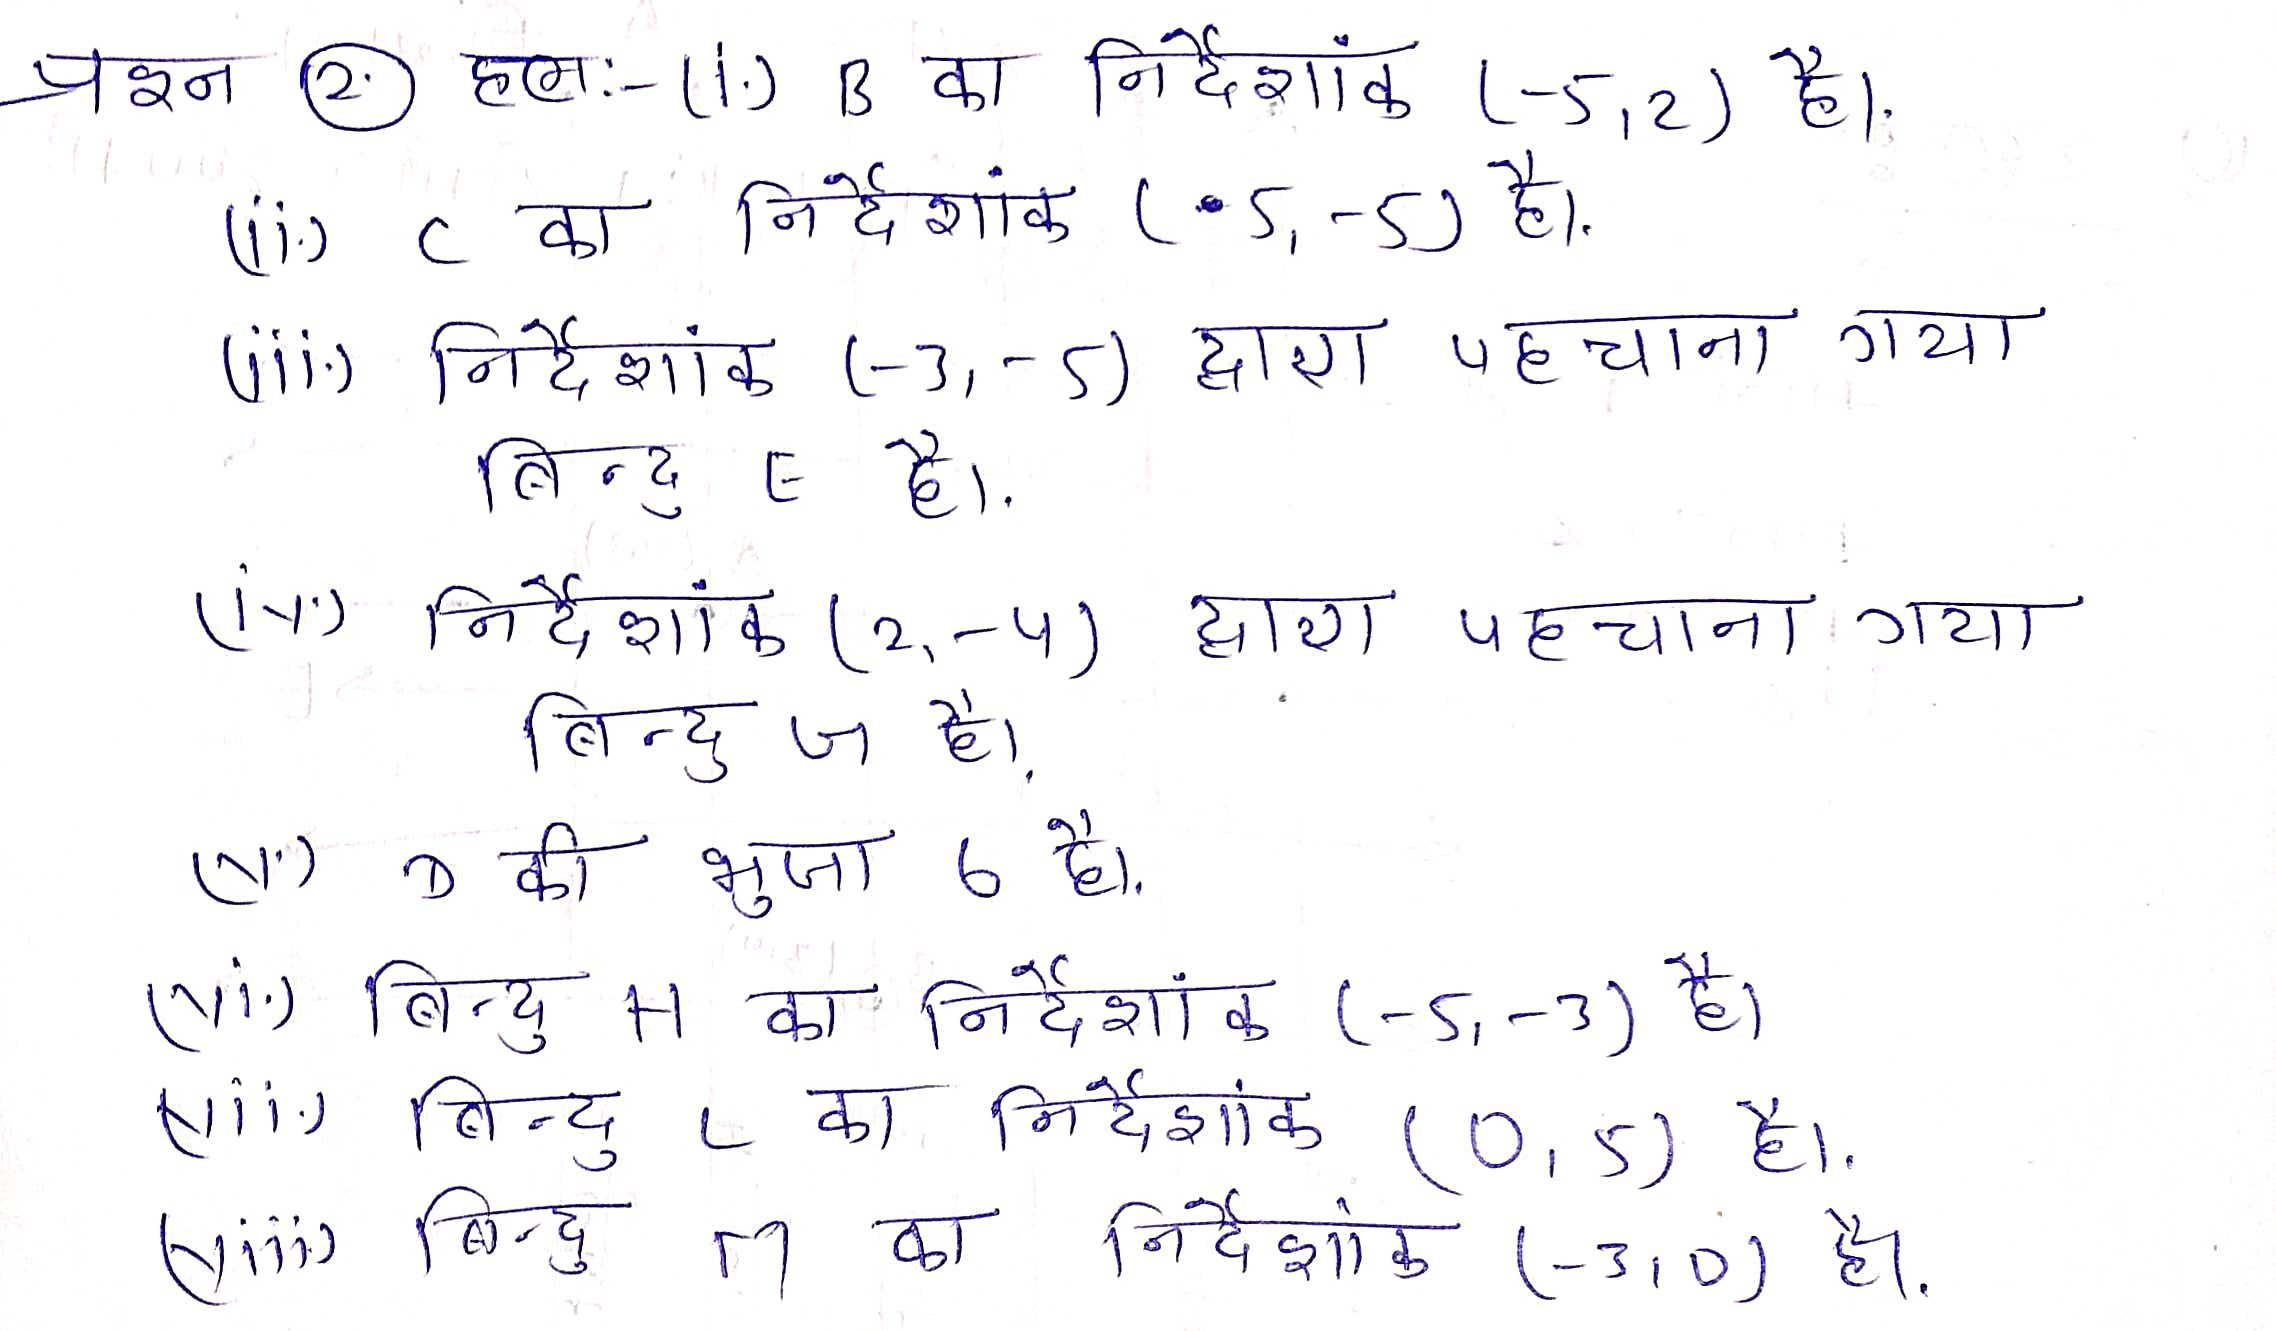 प्रश्न 2. हलः- (i.) B का निर्देशांक (-5,2) है।.
(ii.) C का निर्देशांक (5, -5) है।.
(iii.) निर्देशांक (-3, -5) द्वारा पहचाना गया
बिन्दु E है।.
(iv.) निर्देशांक (2, -4) द्वारा पहचाना गया
बिन्दु ज है।.
(v.) D की भुजा 6 है।.
(vi.) बिन्दु H का निर्देशांक (-5, -3) है।
(vii.) बिन्दु L का निर्देशांक (0, 5) है।.
(viii.) बिन्दु M का निर्देशांक (-3, 0) है।.